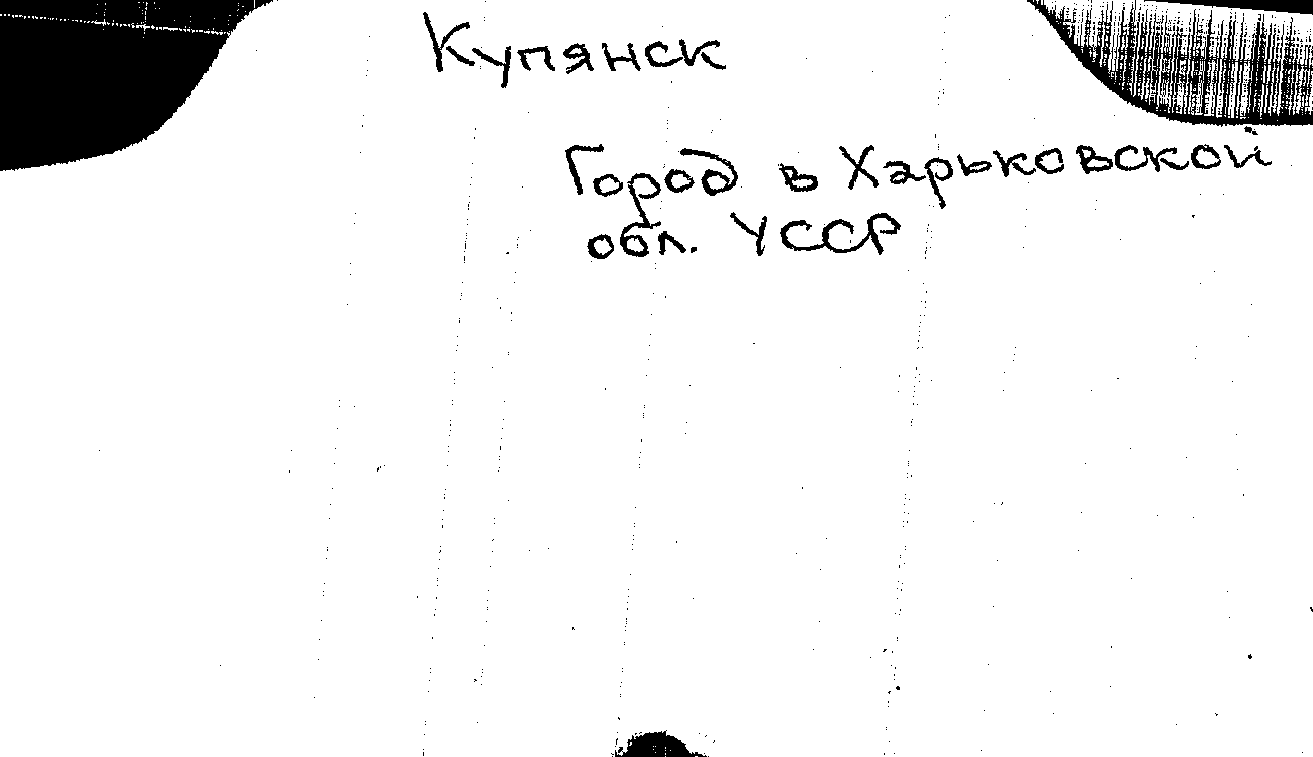 Купянск
Город в Харьковской
обл. УССР